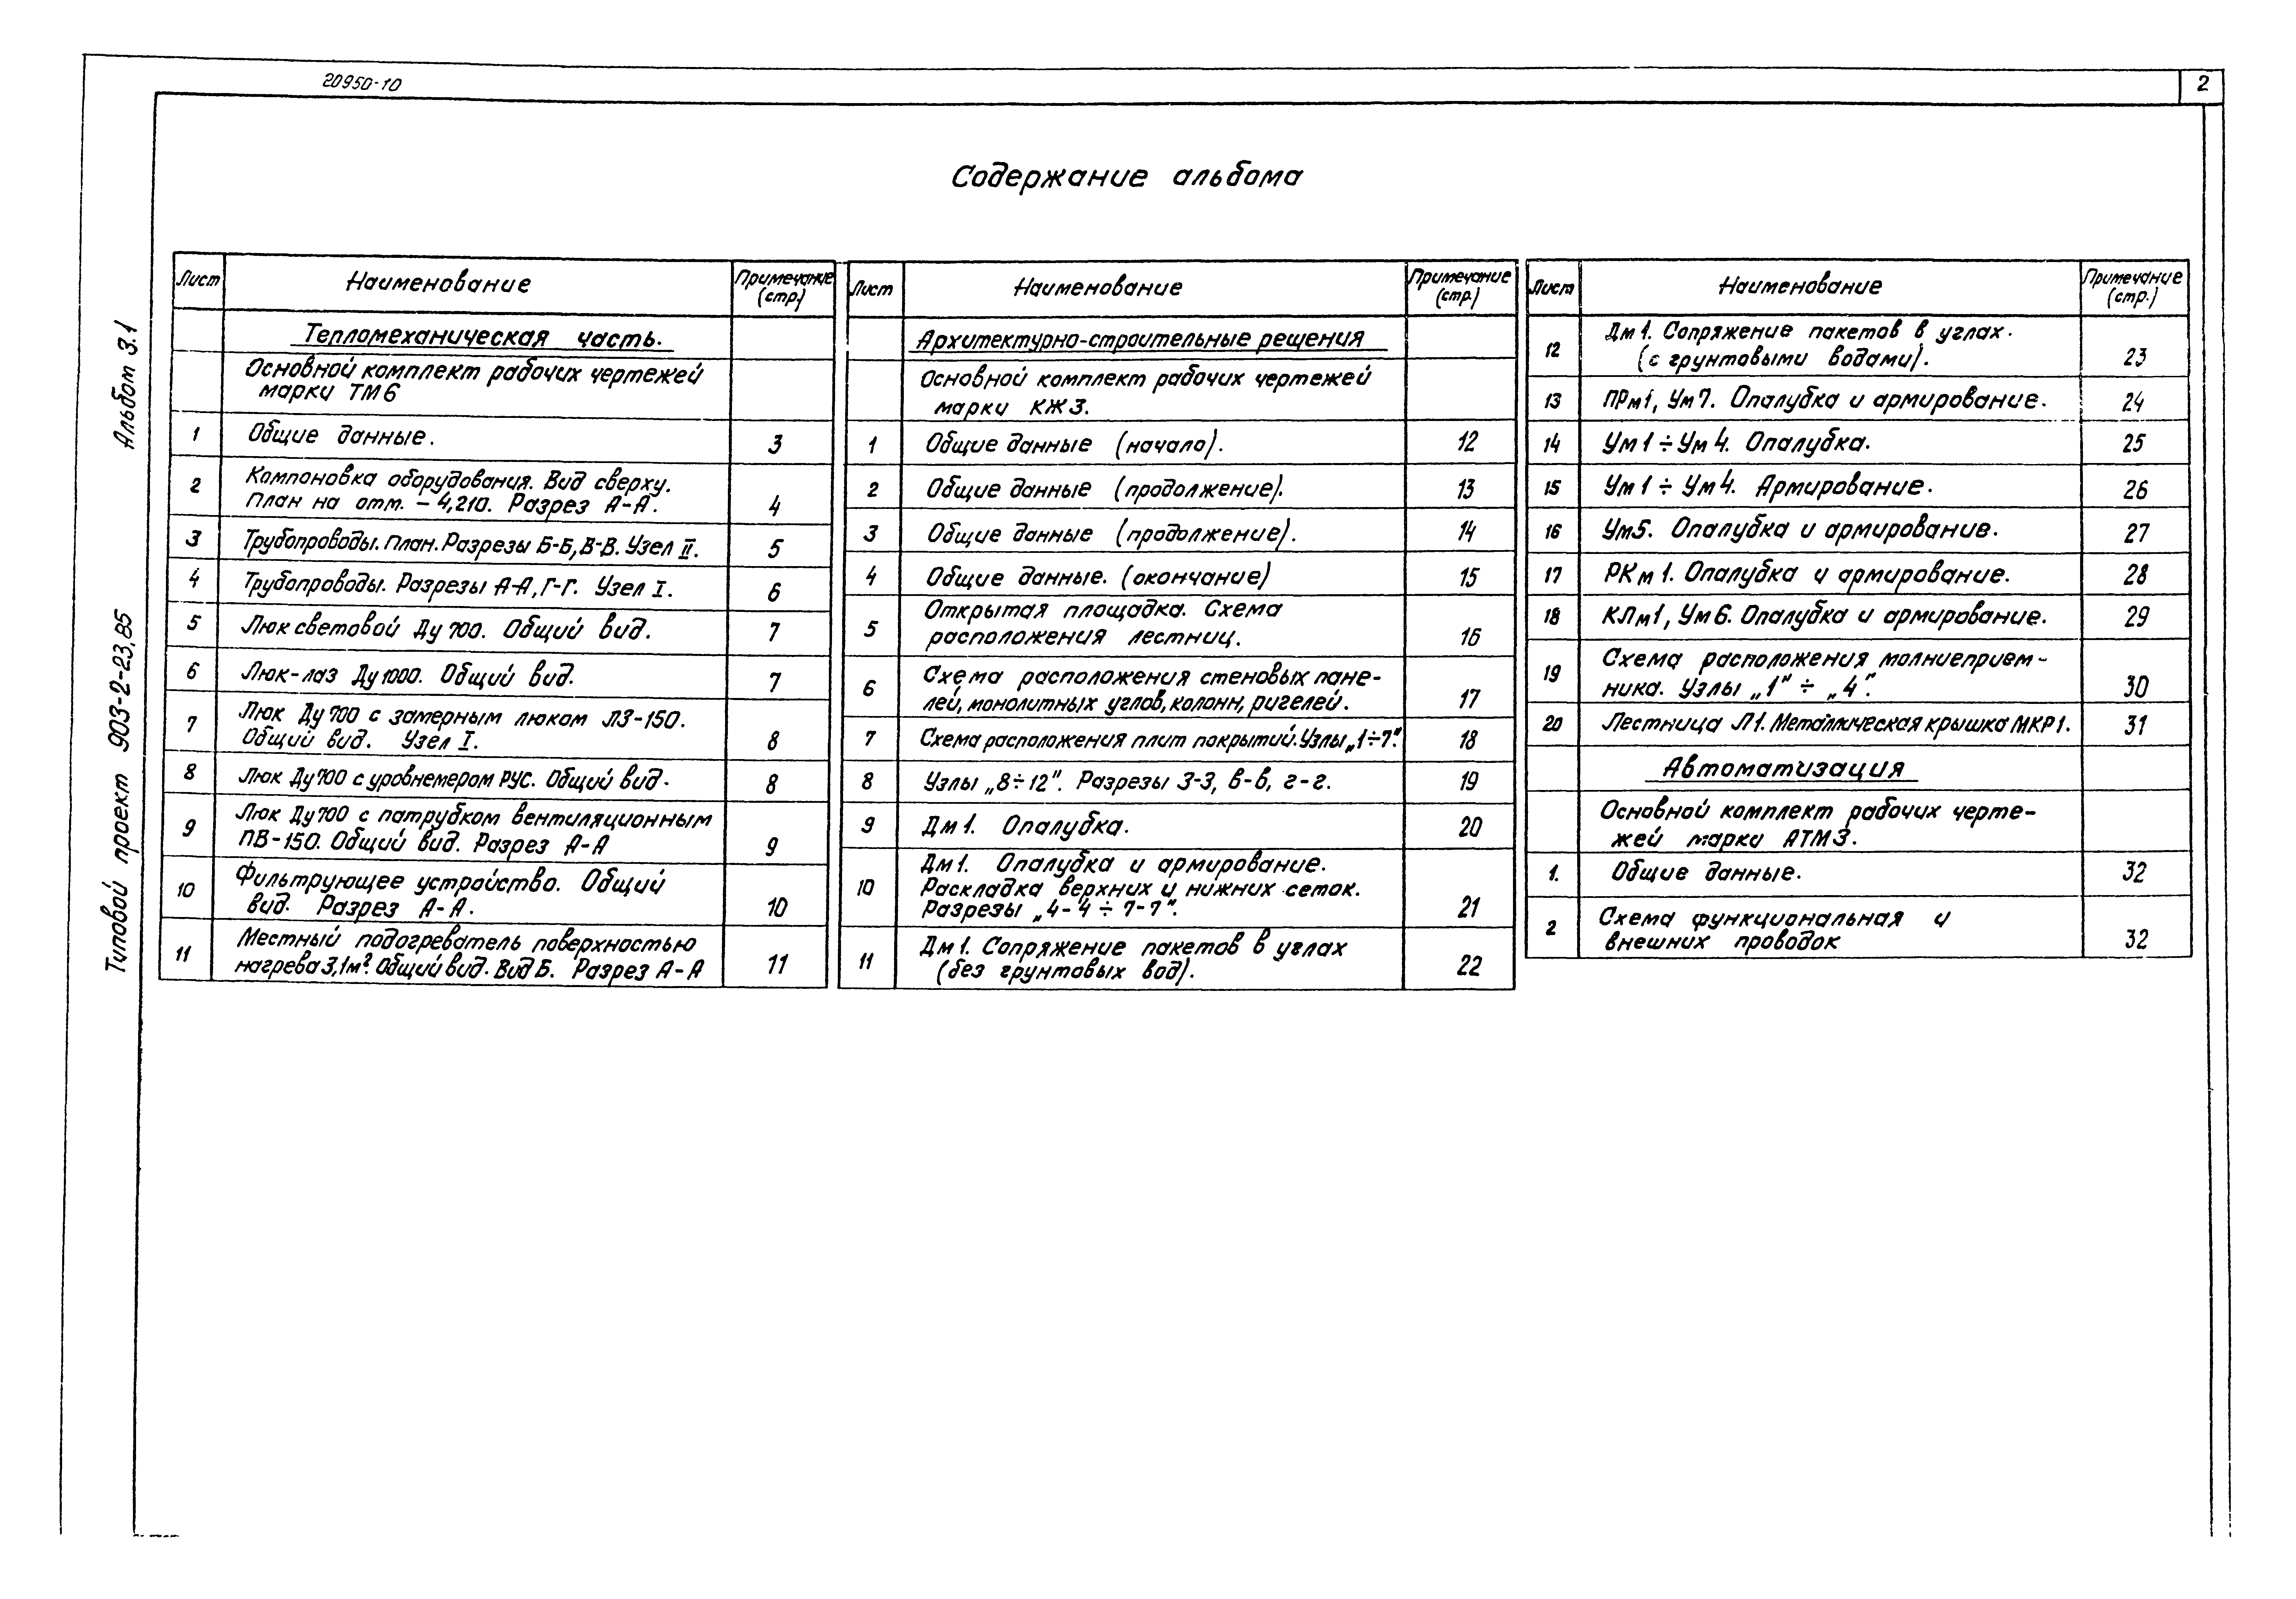 20950-10
2
Содержание альбома
Альбом 3.1
Типовой проект 903-2-23.85
Лист Наименование Примечание (стр.)
Тепломеханическая часть.
Основной комплект рабочих чертежей
марки ТМ6
1 Общие данные. 3
2 Компоновка оборудования. Вид сверху.
План на отм. – 4,210. Разрез А-А. 4
3 Трубопроводы. План. Разрезы Б-Б, В-В. Узел II. 5
4 Трубопроводы. Разрезы А-А, Г-Г. Узел I. 6
5 Люк световой Ду 700. Общий вид. 7
6 Люк-лаз Ду 1000. Общий вид. 7
7 Люк Ду 700 с замерным люком ЛЗ-150.
Общий вид. Узел I. 8
8 Люк Ду 700 с уровнемером РУС. Общий вид. 8
9 Люк Ду 700 с патрубком вентиляционным
ПВ-150. Общий вид. Разрез А-А 9
10 Фильтрующее устройство. Общий
вид. Разрез А-А. 10
11 Местный подогреватель поверхностью
нагрева 3,1м². Общий вид. Вид Б. Разрез А-А 11
Лист Наименование Примечание (стр.)
Архитектурно-строительные решения
Основной комплект рабочих чертежей
марки КЖ3.
1 Общие данные (начало). 12
2 Общие данные (продолжение). 13
3 Общие данные (продолжение). 14
4 Общие данные. (окончание) 15
5 Открытая площадка. Схема
расположения лестниц. 16
6 Схема расположения стеновых пане-
лей, монолитных углов, колонн, ригелей. 17
7 Схема расположения плит покрытий. Узлы „1÷7". 18
8 Узлы „8÷12". Разрезы 3-3, в-в, г-г. 19
9 Дм1. Опалубка. 20
10 Дм1. Опалубка и армирование.
Раскладка верхних и нижних сеток.
Разрезы „4-4÷7-7". 21
11 Дм1. Сопряжение пакетов в углах
(без грунтовых вод). 22
Лист Наименование Примечание (стр.)
12 Дм1. Сопряжение пакетов в углах.
(с грунтовыми водами). 23
13 ПРм1, Ум7. Опалубка и армирование. 24
14 Ум1÷Ум4. Опалубка. 25
15 Ум1÷Ум4. Армирование. 26
16 Ум5. Опалубка и армирование. 27
17 РКм1. Опалубка и армирование. 28
18 КЛм1, Ум6. Опалубка и армирование. 29
19 Схема расположения молниеприем-
ника. Узлы „1"÷„4". 30
20 Лестница Л1. Металлическая крышка МКР1. 31
Автоматизация
Основной комплект рабочих черте-
жей марки АТМ3.
1. Общие данные. 32
2 Схема функциональная и
внешних проводок 32